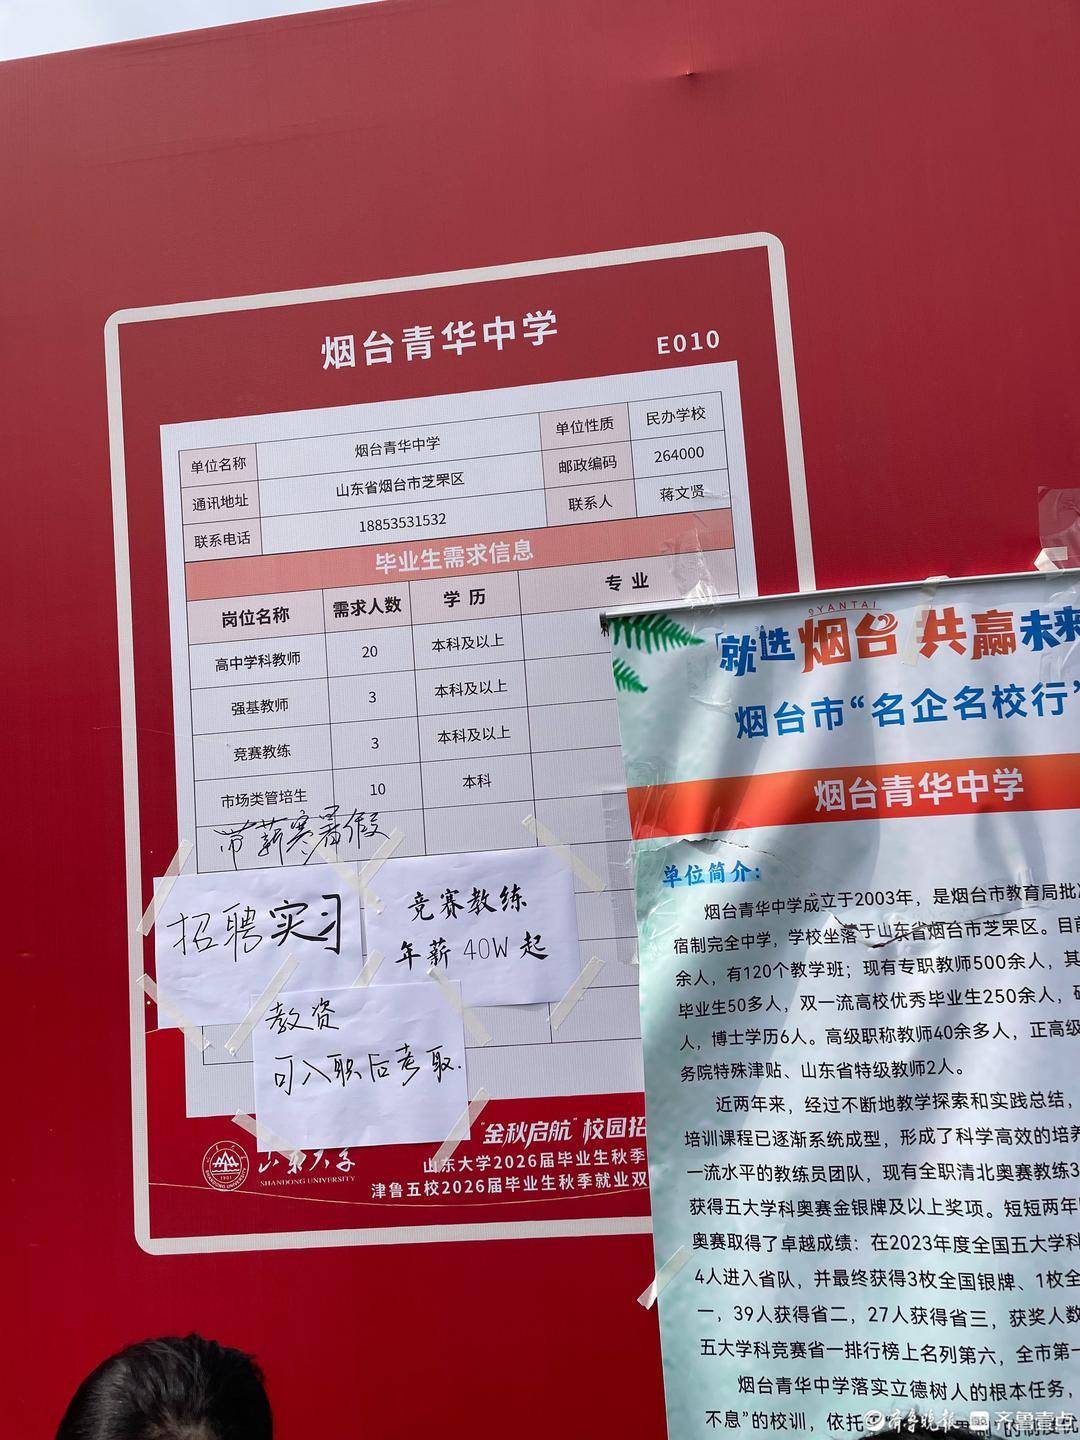 烟台青华中学
E010
单位名称 烟台青华中学 单位性质 民办学校
通讯地址 山东省烟台市芝罘区 邮政编码 264000
联系电话 18853531532 联系人 蒋文贤
毕业生需求信息
岗位名称 需求人数 学历 专业
高中学科教师 20 本科及以上
强基教师 3 本科及以上
竞赛教练 3 本科及以上
市场类管培生 10 本科
带薪寒暑假
招聘实习
竞赛教练
年薪40W起
教资
可入职后考取.
"金秋启航"校园招
山东大学
SHANDONG UNIVERSITY
1901
山东大学2026届毕业生秋季
津鲁五校2026届毕业生秋季就业双
YANTAI
就选烟台 共赢未来
烟台市“名企名校行”
烟台青华中学
单位简介：
烟台青华中学成立于2003年，是烟台市教育局批
宿制完全中学，学校坐落于山东省烟台市芝罘区。目前
余人，有120个教学班；现有专职教师500余人，其
毕业生50多人，双一流高校优秀毕业生250余人，
人，博士学历6人。高级职称教师40余多人，正高级
务院特殊津贴、山东省特级教师2人。
近两年来，经过不断地教学探索和实践总结，
培训课程已逐渐系统成型，形成了科学高效的培养
一流水平的教练员团队，现有全职清北奥赛教练3
获得五大学科奥赛金银牌及以上奖项。短短两年
奥赛取得了卓越成绩：在2023年度全国五大学科
4人进入省队，并最终获得3枚全国银牌、1枚全
一，39人获得省二，27人获得省三，获奖人数
五大学科竞赛省一排行榜上名列第六，全市第一
烟台青华中学落实立德树人的根本任务，
不息”的校训，依托
齐鲁晚报 齐鲁壹点